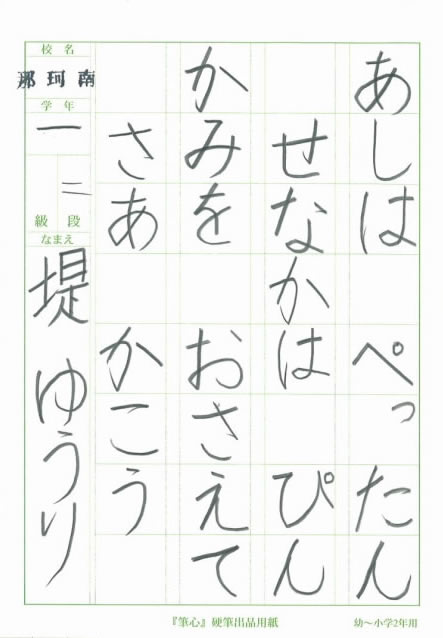 あしは ぺったん
せなかは ぴん
かみを おさえて
さあ かこう
校名
那珂南
学年
一
二
級 段
なまえ
堤 ゆうり
『筆心』硬筆出品用紙 幼〜小学2年用